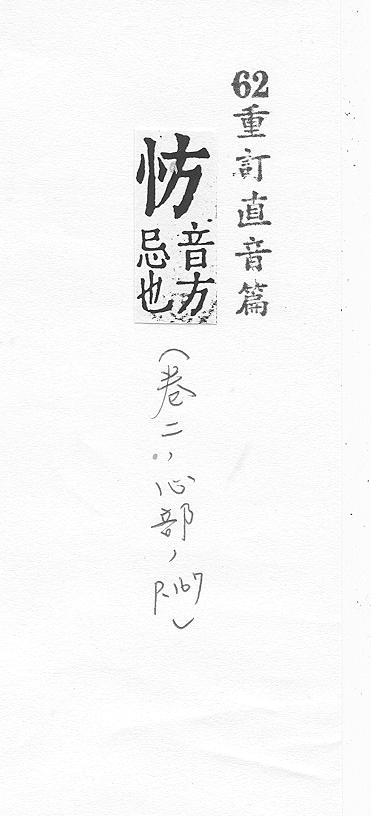 62重訂直音篇
㤃
音方
忌也
(卷二,心部,P.167)